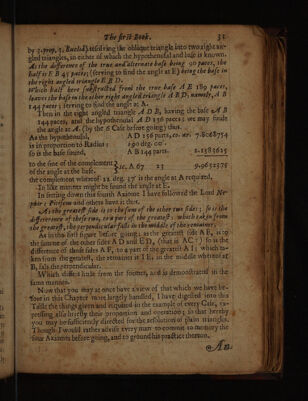 The first Book. 31
by 3. prop. 3. Euclid) resolving the oblique triangle into two right angled
triangles, in either of which the hypothenusal and base is known.
As the difference of the true and alternate base being 90 paces, the
half is E B 45 paces; (serving to find the angle at E) being the base in
the right angled triangle E B D.
Which half here substracted from the true base A E 189 paces,
leaves the base in the other right angled triangle A B D, namely, A B
144 paces; serving to find the angle at A.
Then in the right angled triangle A D B, having the base A B
144 paces, and the hypothenusal A D 156 paces; we may finde
the angle at A. (by the 6 Case before going) thus.
As the hypothenusal, A D 156 parts, co. ar. 7.8068754
is in proportion to Radius; 90 deg. 0'
so is the base found, A B 144 parts. 2.1583625
to the sine of the complement
of the angle at the base. } sc, A 67 23 9.9652379
the complement whereof 22 deg. 37' is the angle at A required.
In like manner might be found the angle at E.
In setting down this fourth Axiome I have followed the Lord Nepier;
Pitiscus and others have it thus.
As the greatest side is to the summ of the other two sides; so is the
difference of those two, to a part of the greatest: which taken from
the greatest, the perpendicular falls in the middle of the remainer.
As in this figure before going; as the greatest side A E, is to
the summe of the other sides A D and E D, (that is AC:) so is the
difference of those sides A F, to a part of the greatest A I: which taken
from the greatest, the remainer is I E, in the middle whereof at
B, falls the perpendicular.
Which differs little from the former, and is demonstrated in the
same manner.
Now that you may at once have a view of that which we have before
in this Chapter more largely handled, I have digested into this
Table the things given and required in the example of every Case, expressing
also briefly their proportion and operation; so that hereby
you may be sufficiently directed for the resolution of plain triangles.
Though I would rather advise every man to commit to memory the
four Axiomes before going, and to ground his practice thereon.